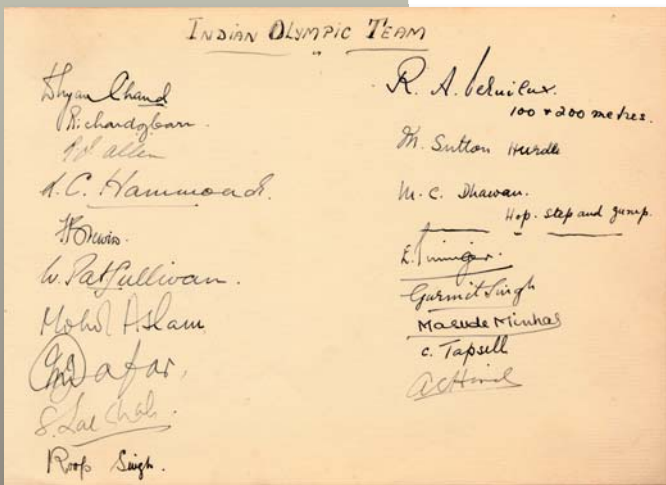 INDIAN OLYMPIC TEAM
Dhyan Chand
Richard J Carr.
R J Allen
L. C. Hammond.
W. Pat Sullivan.
Mohd Aslam
Jafar,
S. Lal Shah.
Roop Singh.
R. A. Vernieux.
100 + 200 metres.
M. Sutton Hurdle
M. C. Dhawan.
Hop. step and jump.
E. Pinniger.
Gurmit Singh
Masude Minhas
C. Tapsell
A C Hind